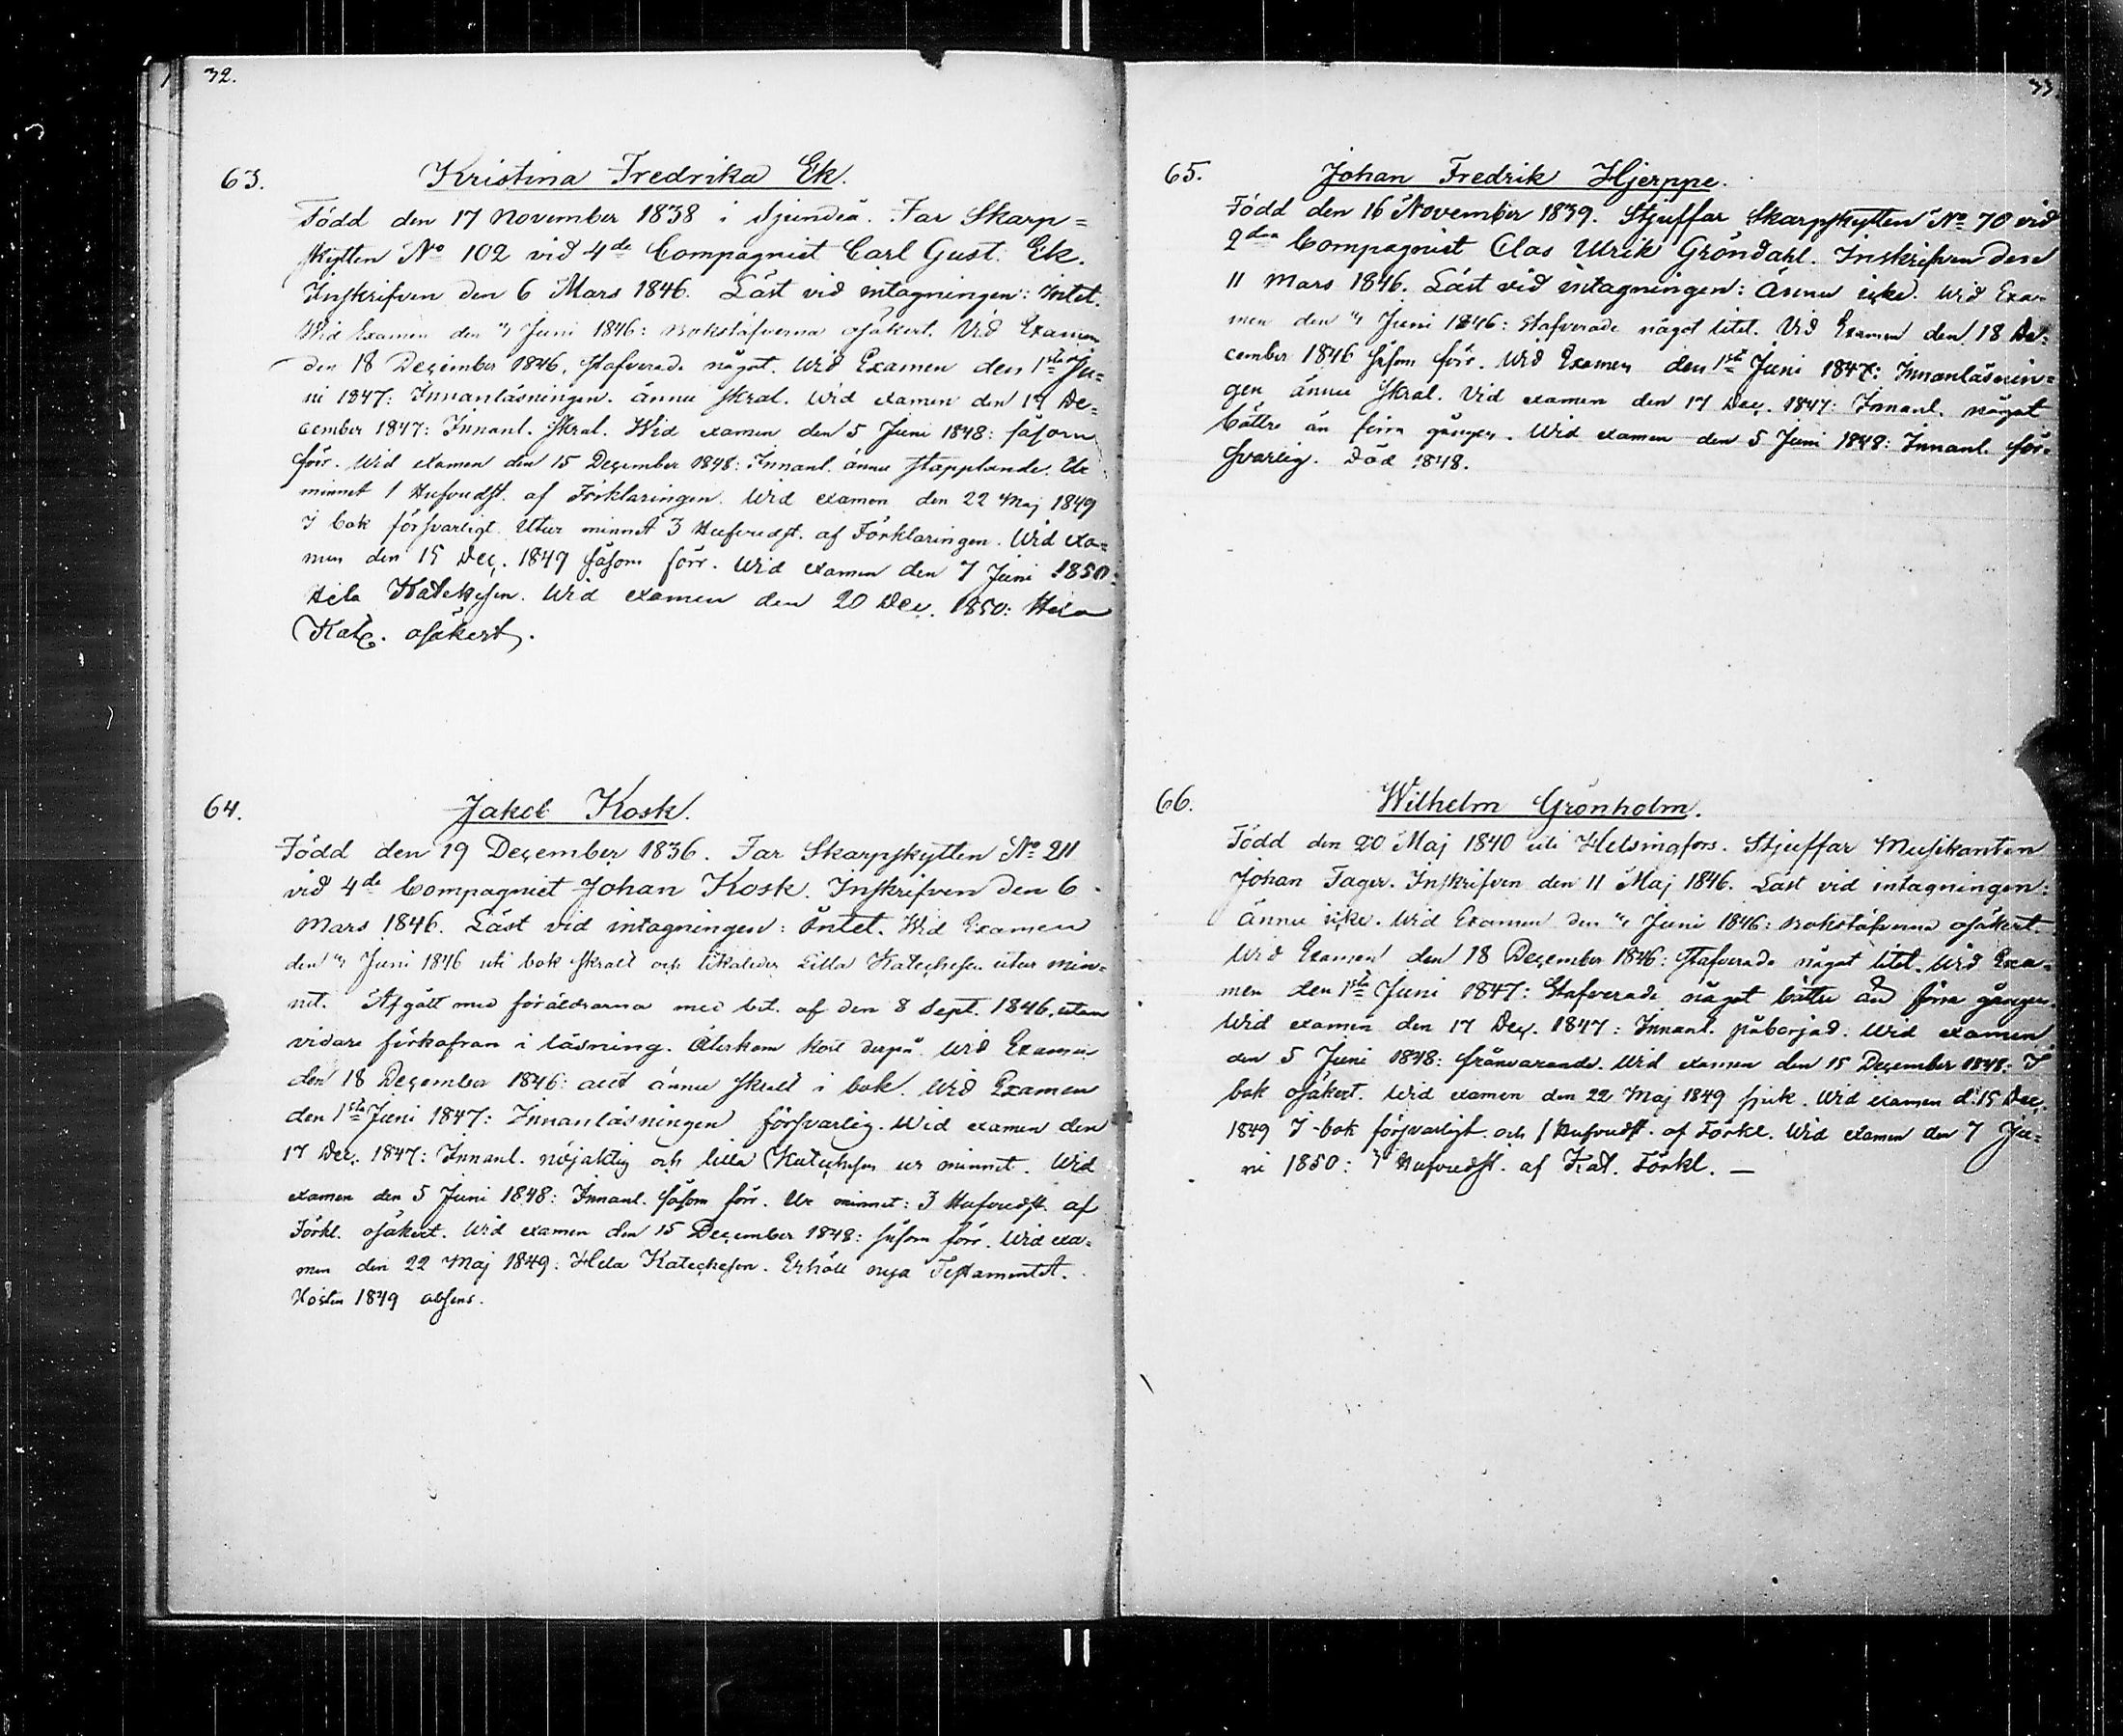 32.
63.
Kristina Fredrika Ek.
Född den 17 November 1838 i Sjundeå. Far Skarp=
skytten No 102 vid 4de Compagniet Carl Gust. Ek.
Inskrifven den 6 Mars 1846. Läst vid intagningen: intet.
Wid Examen den " Juni 1846: Bokstäfverna osäkert. Vid Examen
den 18 December 1846, stafverade något. Wid Examen den 1sta Ju=
ni 1847: Innanläsningen ännu skral. Wid examen den 17 De=
cember 1847: Innanl. skral. Wid examen den 5 Juni 1848: såsom
förr. Wid examen den 15 December 1848: Innanl. ännu stapplande. Ur
minnet 1 Hufvudst. af Förklaringen. Wid examen den 22 Maj 1849
I bok försvarligt. Utur minnet 3 Hufvudst. af Förklaringen. Wid exa=
men den 15 Dec. 1849 såsom förr. Wid examen den 7 Juni 1850:
Hela Katekesen. Wid examen den 20 Dec. 1850: Hela
Kat. osäkert.
64.
Jakob Kosk.
Född den 19 December 1836. Far Skarpskytten No 211
vid 4de Compagniet Johan Kosk. Inskrifven den 6
Mars 1846. Läst vid intagningen: Intet. Wid Examen
den " Juni 1846 uti bok skralt och likaledes Lilla Katechesen utur min=
net. Afgått med föräldrarna med bet. af den 8 Sept. 1846, utan
vidare förkofran i läsning. Återkom kort derpå. Wid Examen
den 18 December 1846: allt ännu skralt i bok. Wid Examen
den 1sta Juni 1847: Innanläsningen försvarlig. Wid examen den
17 Dec. 1847: Innanl. nöjaktig och lilla Katechesen ur minnet. Wid
examen den 5 Juni 1848: Innanl. såsom förr. Ur minnet: 3 Hufvudst. af
Förkl. osäkert. Wid examen den 15 December 1848: såsom förr. Wid exa=
men den 22 Maj 1849: Hela Katechesen. Erhöll nya Testamentet.
Hösten 1849 absens.
33.
65.
Johan Fredrik Hjerppe.
Född den 16 November 1839. Stjuffar Skarpskytten No 70 vid
2dra Compagniet Clas Ulrik Gröndahl. Inskrifven den
11 Mars 1846. Läst vid intagningen: Ännu icke. Wid Exa=
men den " Juni 1846: stafverade något litet. Vid Examen den 18 De=
cember 1846 såsom förr. Wid Examen den 1sta Juni 1847: Innanläsnin=
gen ännu skral. Vid examen den 17 Dec. 1847: Innanl. något
bättre än förra gången. Wid examen den 5 Juni 1848: Innanl. för=
svarlig. Död 1848.
66.
Wilhelm Grönholm.
Född den 20 Maj 1840 uti Helsingfors. Stjuffar Musikanten
Johan Fager. Inskrifven den 11 Maj 1846. Läst vid intagningen:
Ännu icke. Wid Examen den " Juni 1846: Bokstäfverna osäkert.
Wid Examen den 18 December 1846: stafverade något litet. Wid Exa=
men den 1sta Juni 1847: Stafverade något bättre än förra gången.
Wid examen den 17 Dec. 1847: Innanl. påbörjad. Wid examen
den 5 Juni 1848: frånvarande. Wid examen den 15 December 1848: I
bok osäkert. Wid examen den 22 Maj 1849 sjuk. Wid examen d. 15 Dec.
1849 I bok försvarligt och 1 Hufvudst. af Förkl. Wid examen den 7 Ju=
ni 1850: 3 Hufvudst. af Kat. Förkl. —